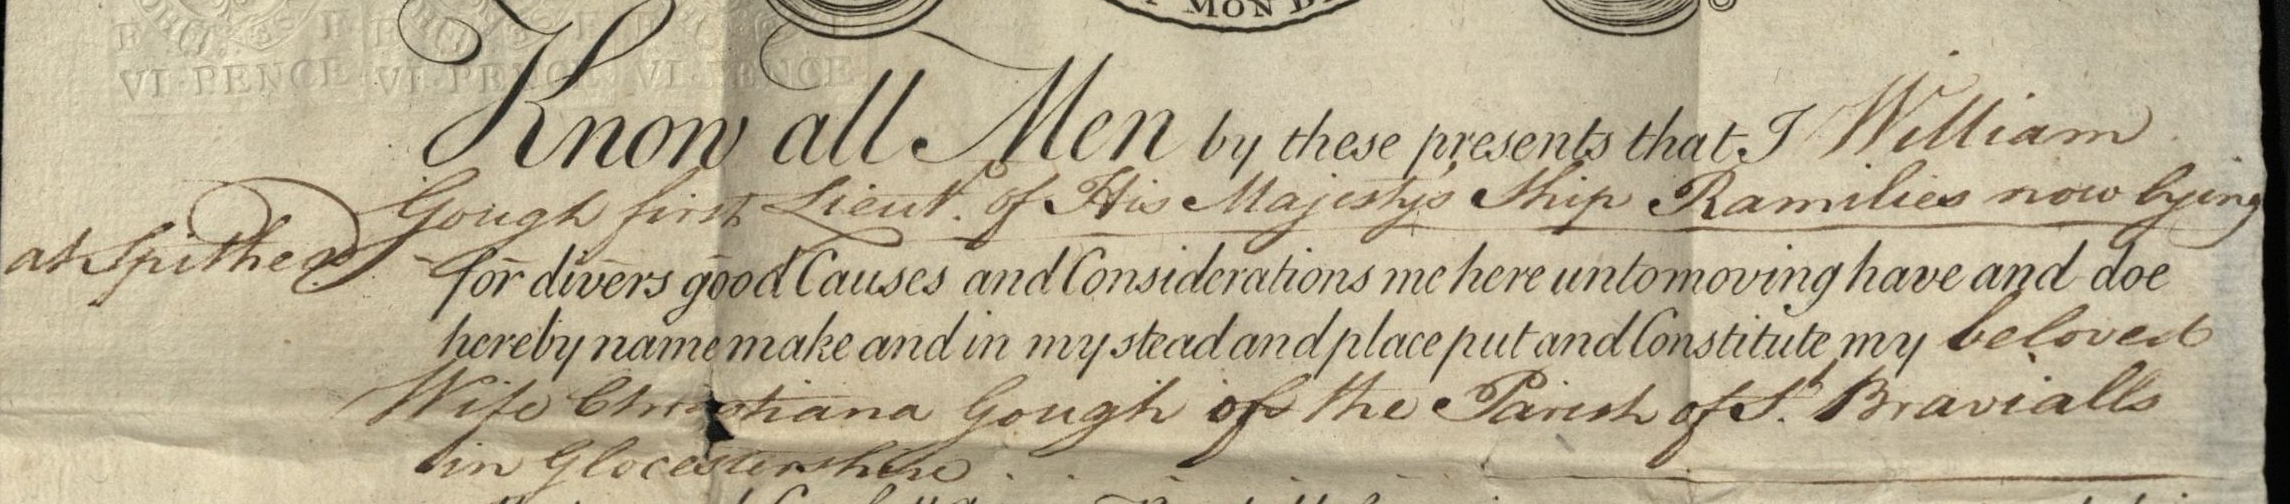 MON D
VI·PENCE VI·PENCE VI·PENCE
Know all Men by these presents that I William
Gough first Lieut. of His Majesty's Ship Ramilies now lying
at Spithead
for divers good Causes and Considerations me here unto moving have and doe
hereby name make and in my stead and place put and Constitute my beloved
Wife Christiana Gough of the Parish of St. Bravialls
in Glocestershire